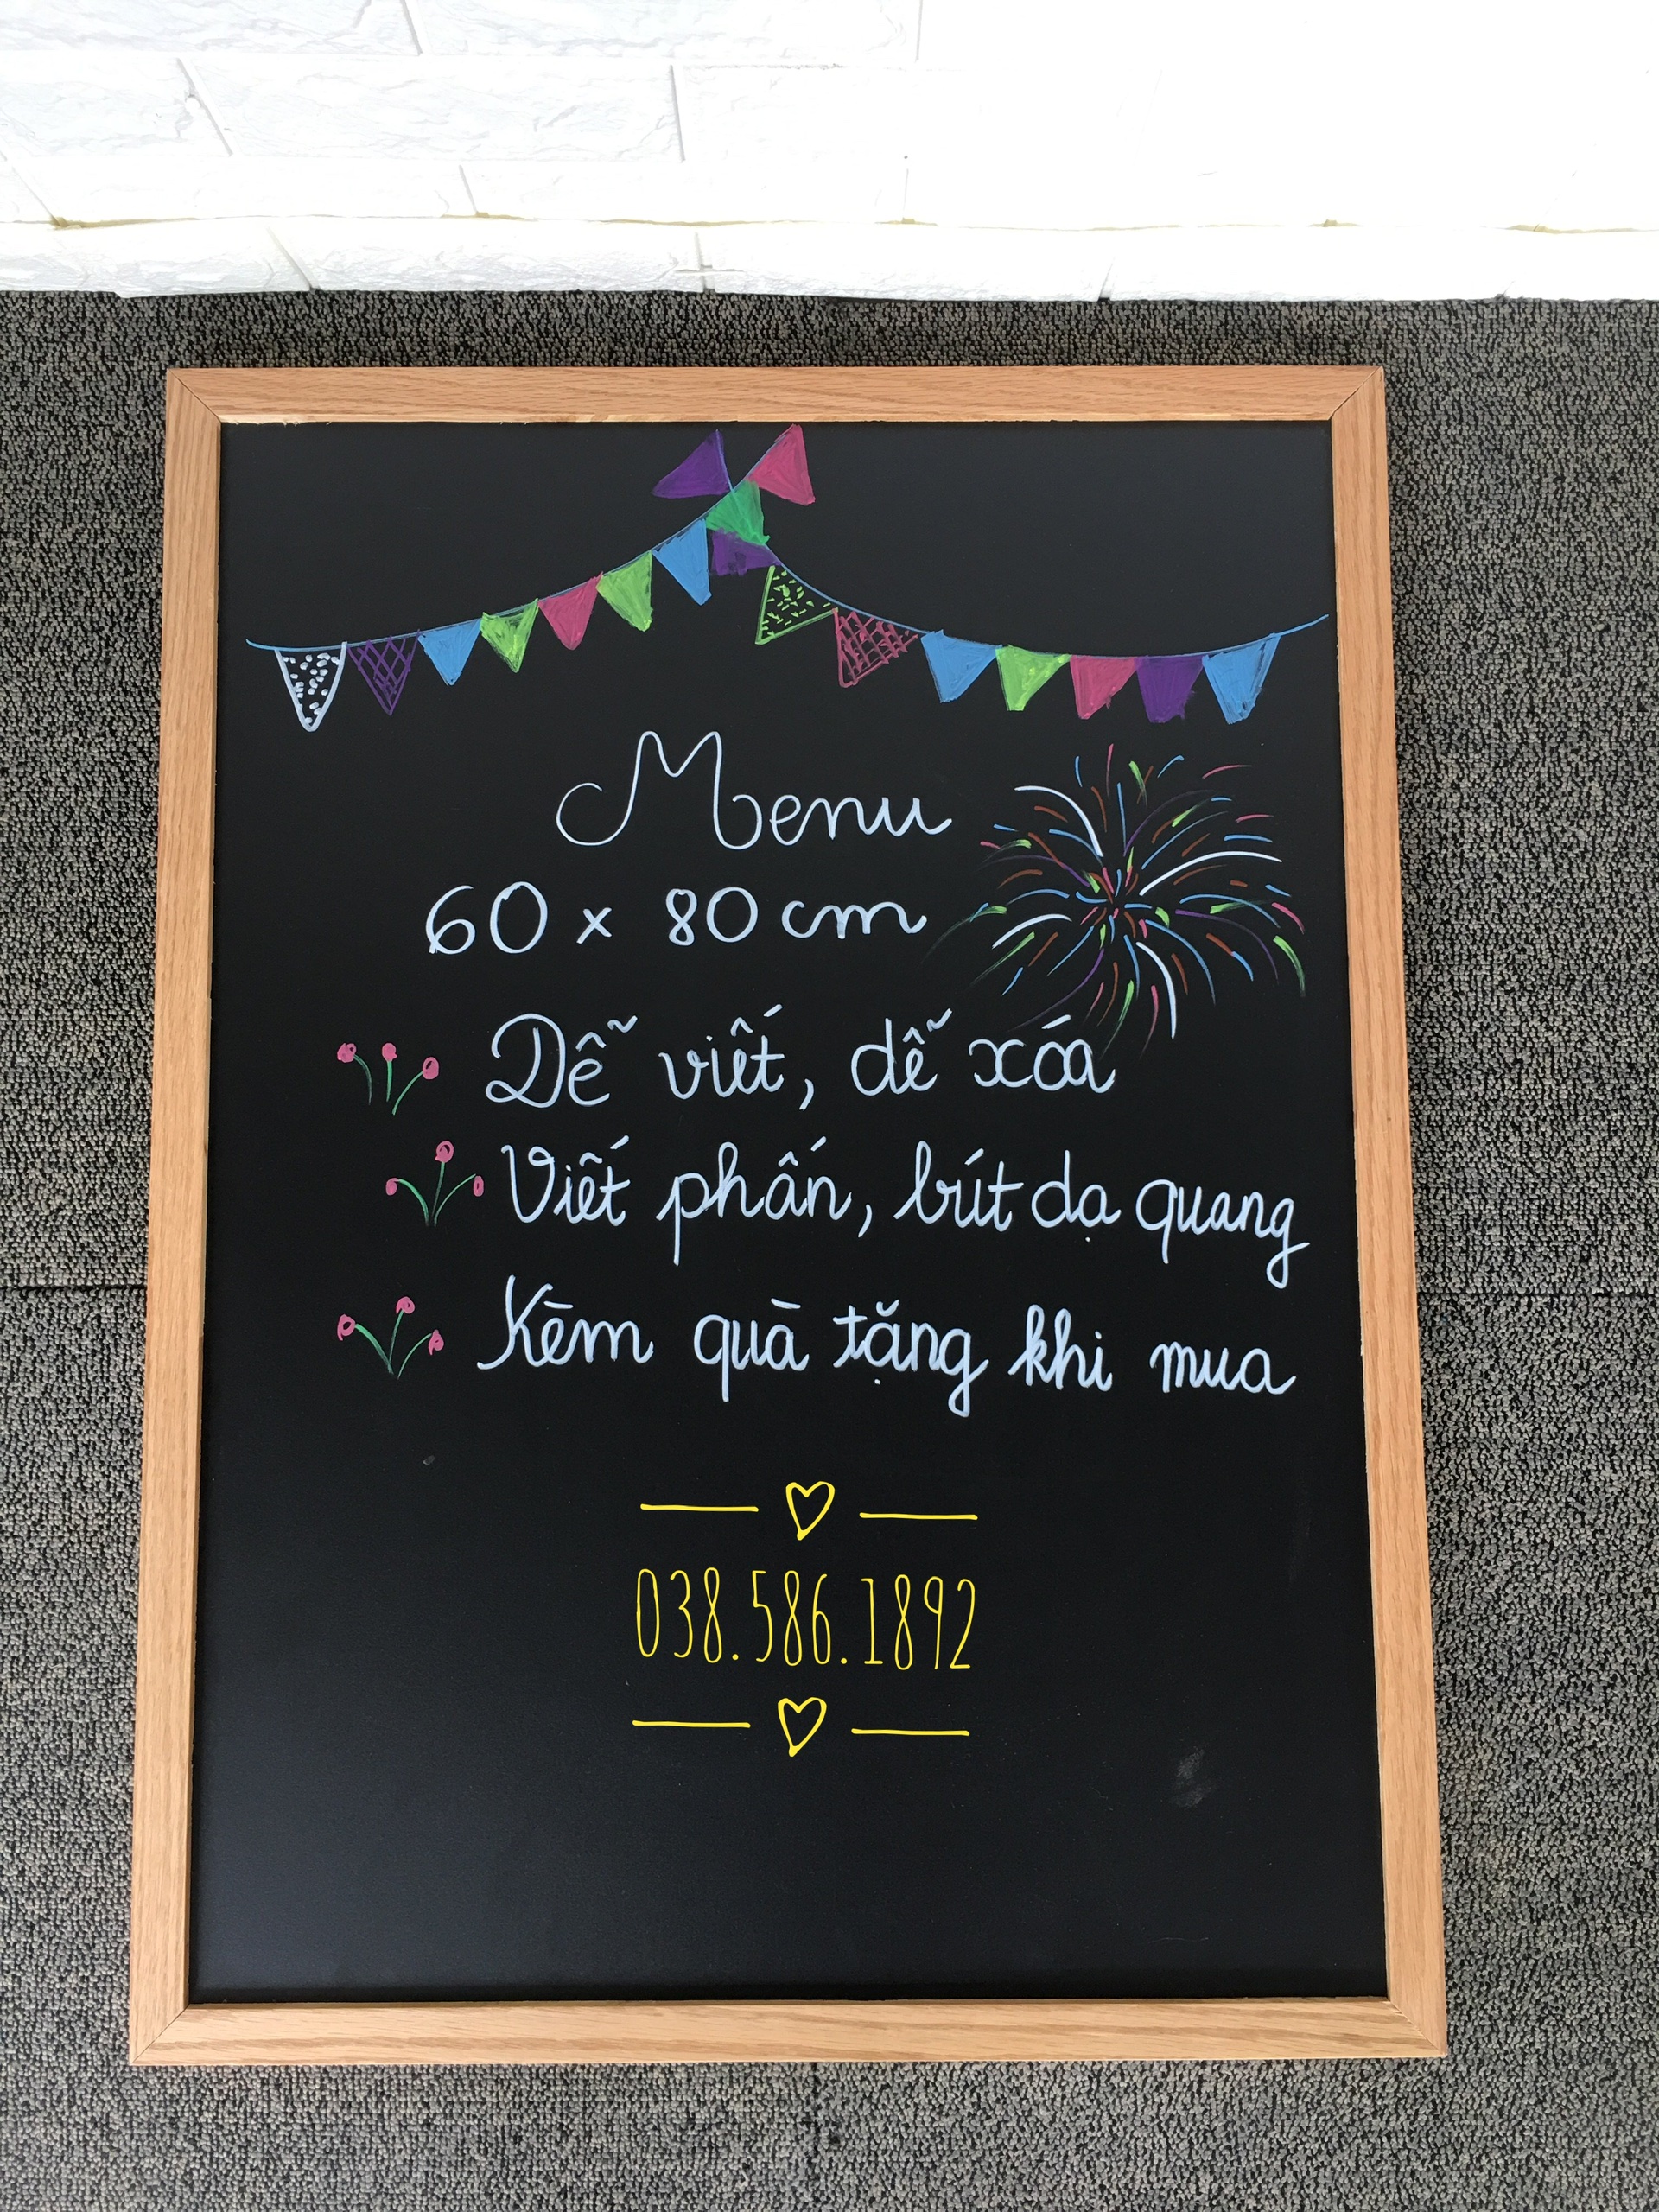 Menu
60 x 80 cm
Dễ viết, dễ xóa
Viết phấn, bút dạ quang
Kèm quà tặng khi mua
038.586.1892